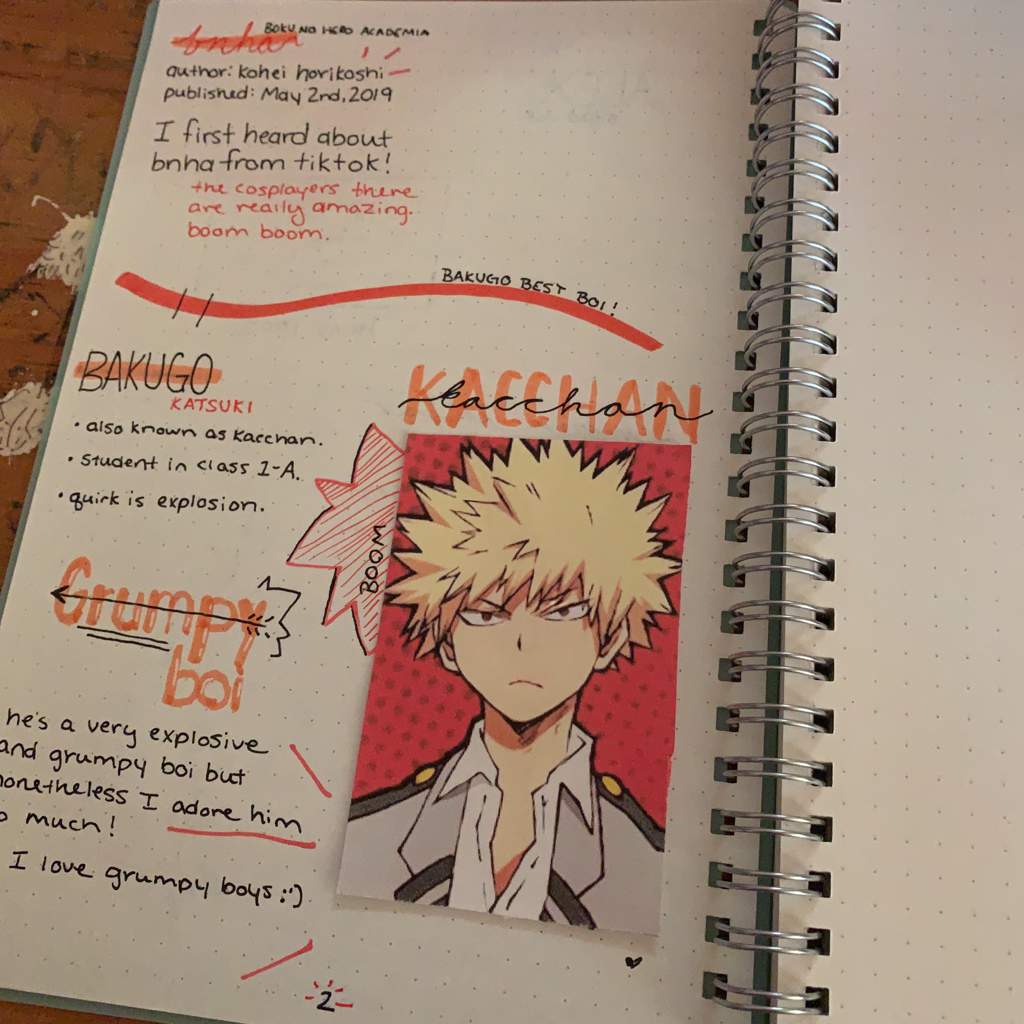 bnha
BOKU NO HERO ACADEMIA
author: kohei horikoshi
published: May 2nd, 2019
I first heard about
bnha from tiktok!
the cosplayers there
are really amazing.
boom boom.
BAKUGO BEST BOI!
BAKUGO
KATSUKI
• also known as kacchan.
• student in class 1-A.
• quirk is explosion.
KACCHAN
kacchan
BOOM
Grumpy
boi
he's a very explosive
and grumpy boi but
nonetheless I adore him
o much!
I love grumpy boys :')
2